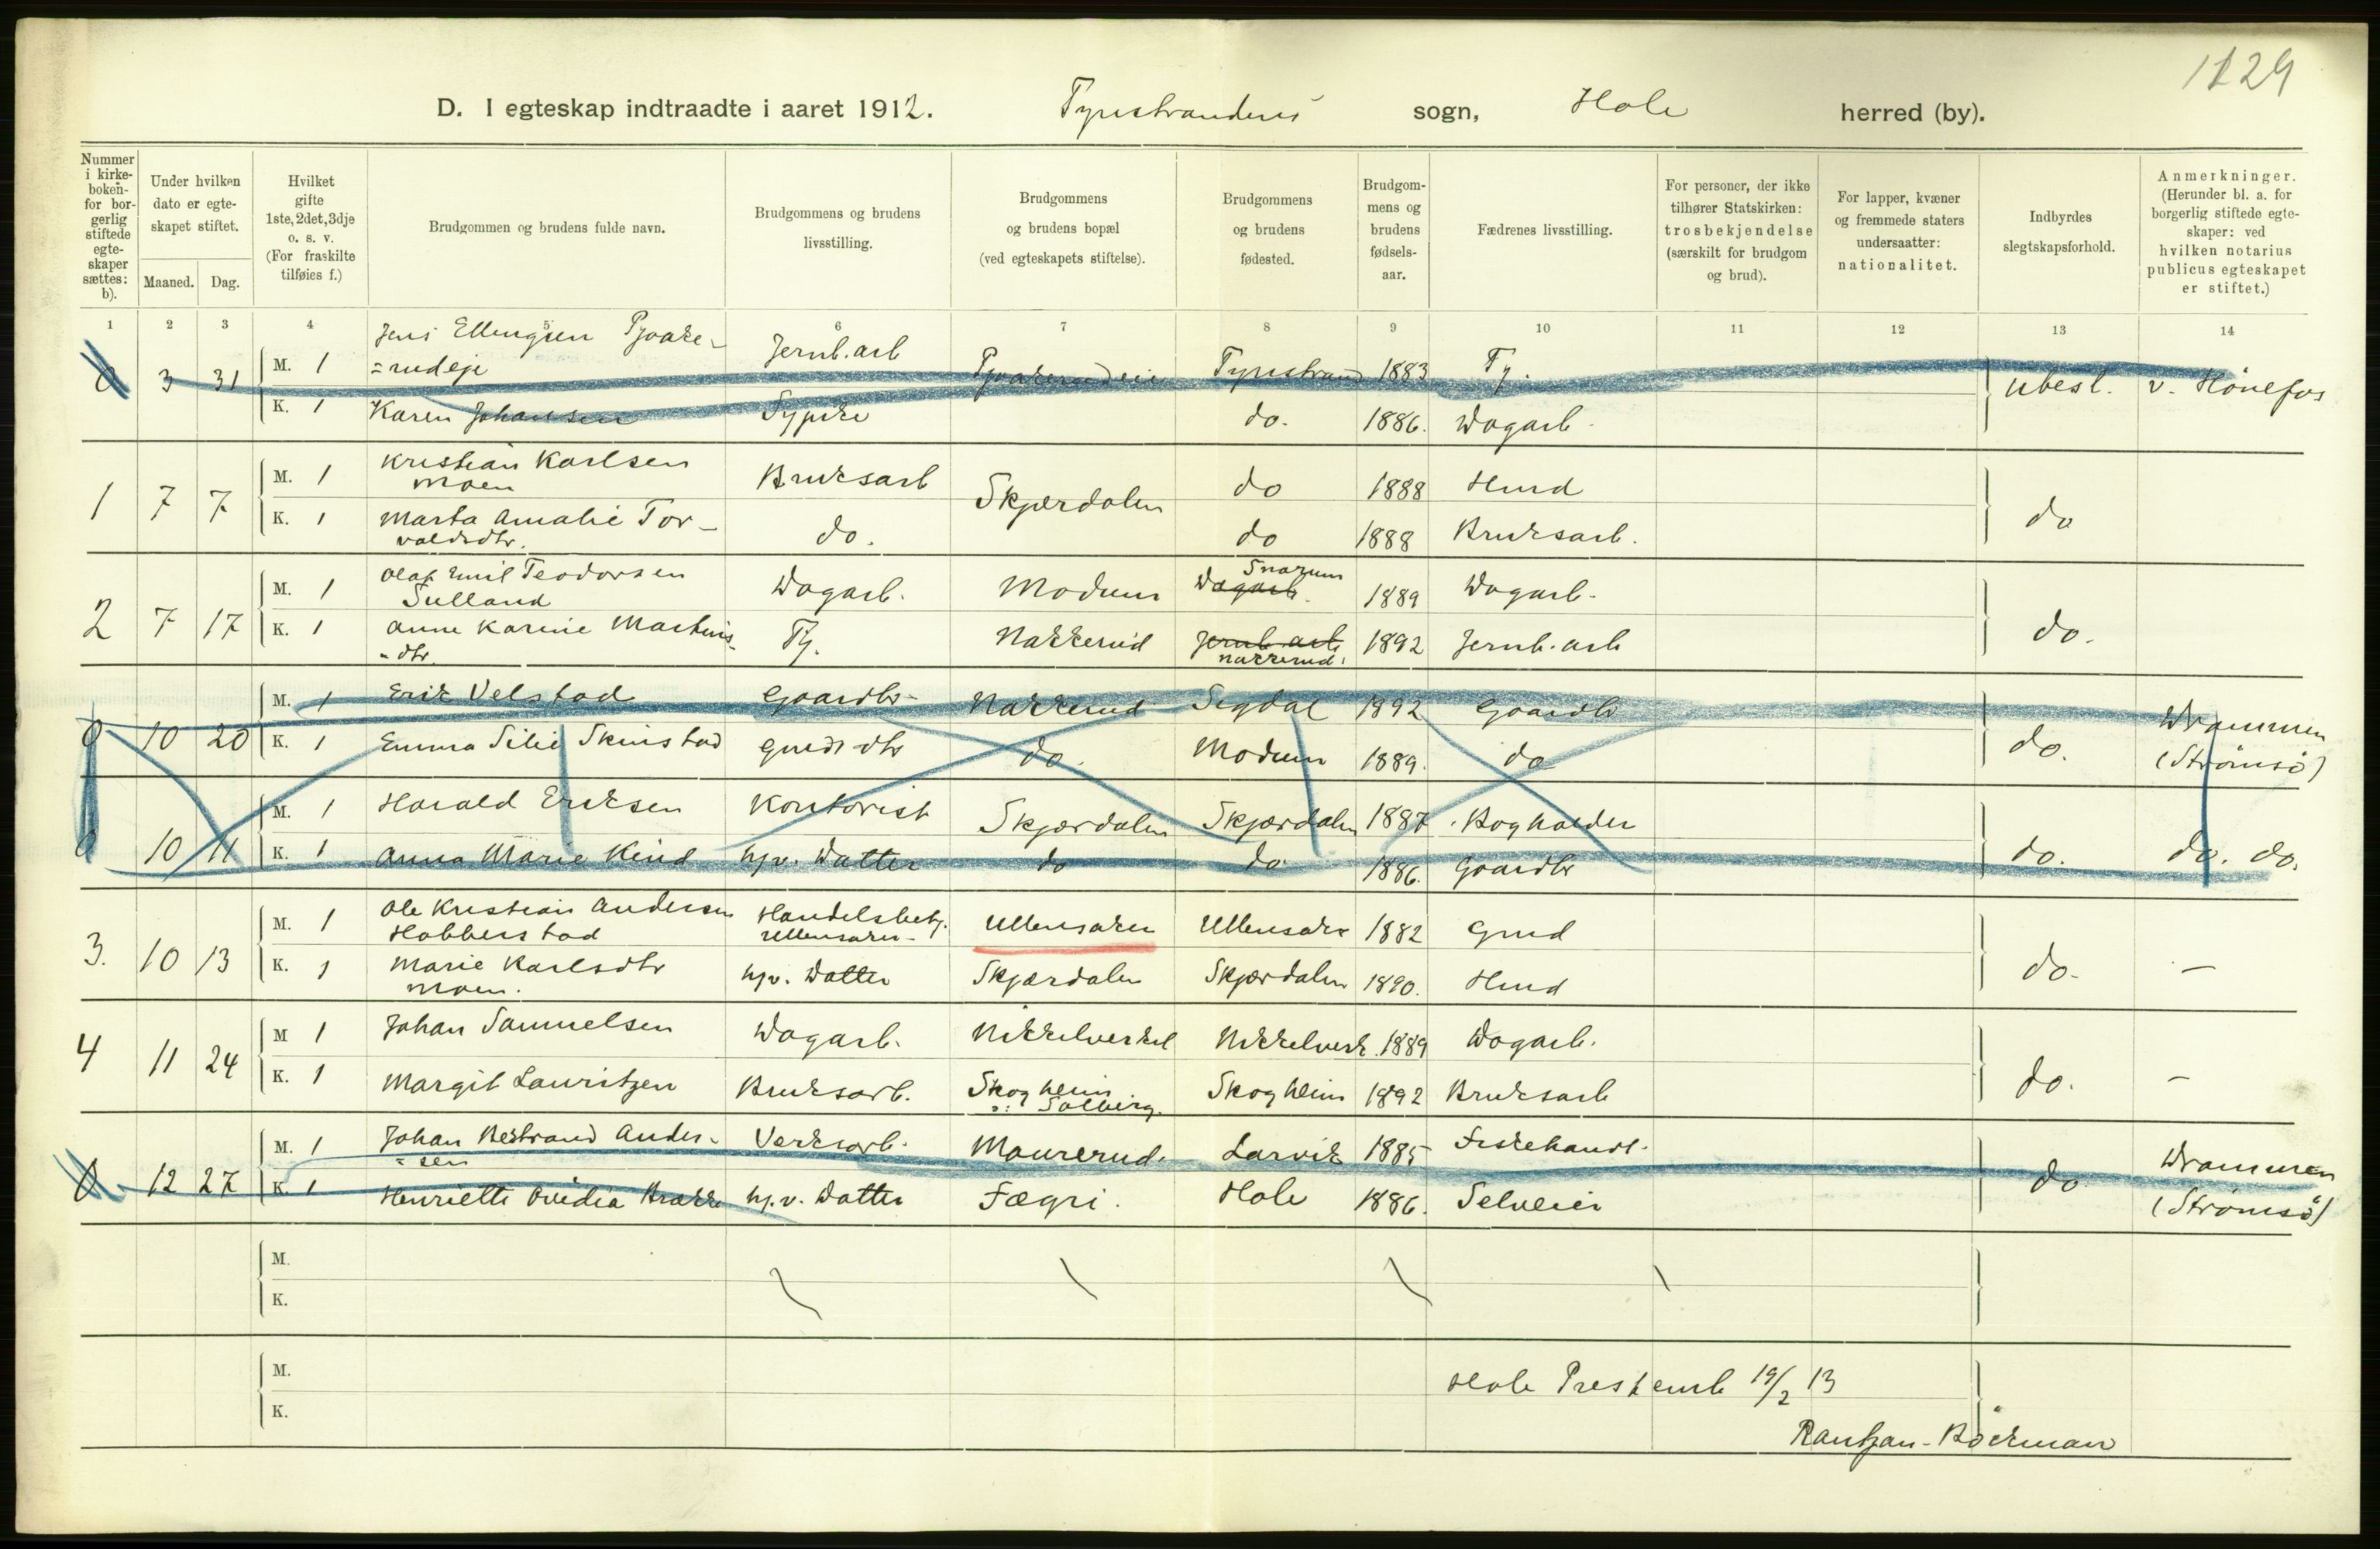 1129
D. I egteskap indtraadte i aaret 1912. Tyristrandens sogn, Hole herred (by).
Nummer i kirkeboken- for borgerlig stiftede egteskaper sættes: b).
Under hvilken dato er egteskapet stiftet.
Maaned. Dag.
Hvilket gifte 1ste, 2det, 3dje o. s. v. (For fraskilte tilføies f.)
Brudgommen og brudens fulde navn.
Brudgommens og brudens livsstilling.
Brudgommens og brudens bopæl (ved egteskapets stiftelse).
Brudgommens og brudens fødested.
Brudgommens og brudens fødselsaar.
Fædrenes livsstilling.
For personer, der ikke tilhører Statskirken: trosbekjendelse (særskilt for brudgom og brud).
For lapper, kvæner og fremmede staters undersaatter: nationalitet.
Indbyrdes slegtskapsforhold.
Anmerkninger. (Herunder bl. a. for borgerlig stiftede egteskaper: ved hvilken notarius publicus egteskapet er stiftet.)
1 2 3 4 5 6 7 8 9 10 11 12 13 14
0 3 31 M. 1 Jens Ellingsen
=rudeje Jernb. arb Tyristrand 1883 Tj. ubesl. v. Hönefos
K. 1 Karen Johansen Sypike do. 1886. Dagarb.
1 7 7 M. 1 Kristian Karlsen
Moen Bruksarb Skjærdalen do 1888 Hmd do
K. 1 Marta Amalie Tor-
valdsdtr. do. do 1888 Bruksarb.
2 7 17 M. 1 Olaf Emil Teodorsen
Sulland Dagarb. Modum Dagarb. Snarum 1889 Dagarb. do.
K. 1 Anne Karine Martins
-dtr. Tj. Nakkerud Jernb. arb Nakkerud. 1892 Jernb. arb
0 10 20 M. 1 Erik Velstad Gaardbr Nakkerud Sigdal 1892 Gaardbr do. Drammen
K. 1 Emma Silie Skinstad Gmds dtr do. Modum 1889. do (Strömsö)
0 10 11 M. 1 Harald Eriksen Kontorist Skjærdalen Skjærdalen 1887 Bogholder do. do. do.
K. 1 Anna Marie Kind hjv. Datter do do 1886. Gaardbr
3. 10 13 M. 1 Ole Kristian Andersen
Habberstad Handelsbetj.
Ullensaker Ullensaker Ullensaker 1882 Gmd do. —
K. 1 Marie Karlsdtr
Moen. hjv. Datter Skjærdalen Skjærdalen 1890. Hmd
4 11 24 M 1 Johan Samuelsen Dagarb. Nikkelverket Nikkelverk. 1889 Dagarb. do. —
K. 1 Margit Lauritzen Bruksarb. Skogheim
o: Solberg. Skogheim 1892 Bruksarb
0 12 27 M. 1 Johan Bertrand Ander-
=sen Verksarb. Maurerud. Larvik 1885 Fiskehandl. do Drammen
K. 1 Henriette Ovidia hj.v. Datter Fægri. Hole 1886. Selveier (Strömsö)
M.
K.
M.
K.
Hole Prestemb 19/2 13
Rantzau-Böckman